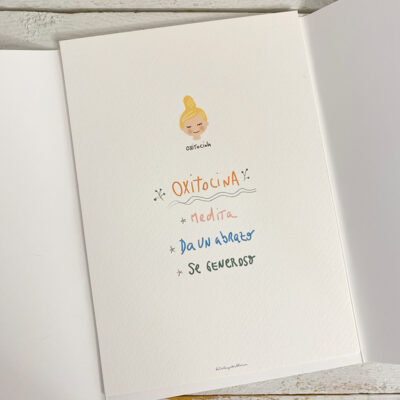 OXITOCINA
OXITOCINA
* Medita
* DA UN abrazo
* Se GENEROSO